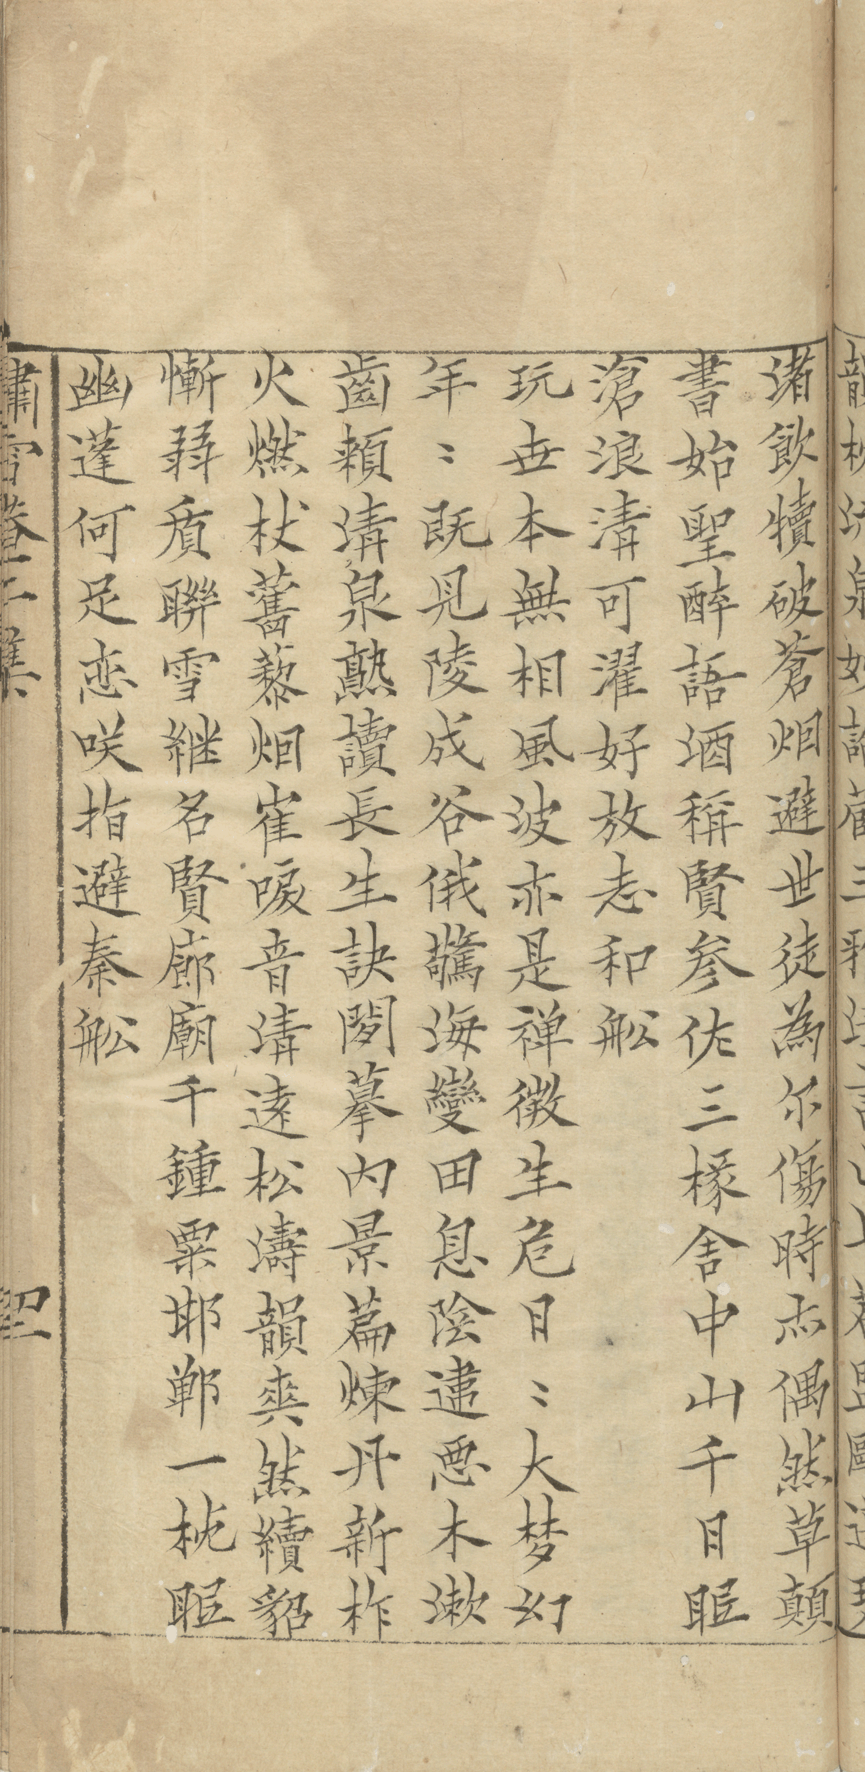 渚飲犢破蒼烟避世徒為尓傷時忝偶然草顛
書始聖醉語酒稱賢参佐三椽舍中山千日眠
滄浪清可濯好放志和舩
玩世本無相風波亦是禅徴生危日〻大梦幻
年〻既見陵成谷俄驚海變田息陰違惡木漱
齒頼清泉熟讀長生訣閑摹内景篇煉丹新柞
火燃杖舊藜烟崔唳音清遠松濤韻爽然續貂
慚弱質聯雪継名賢廊廟千鍾粟邯鄲一枕眠
幽蓬何足恋咲指避秦舩